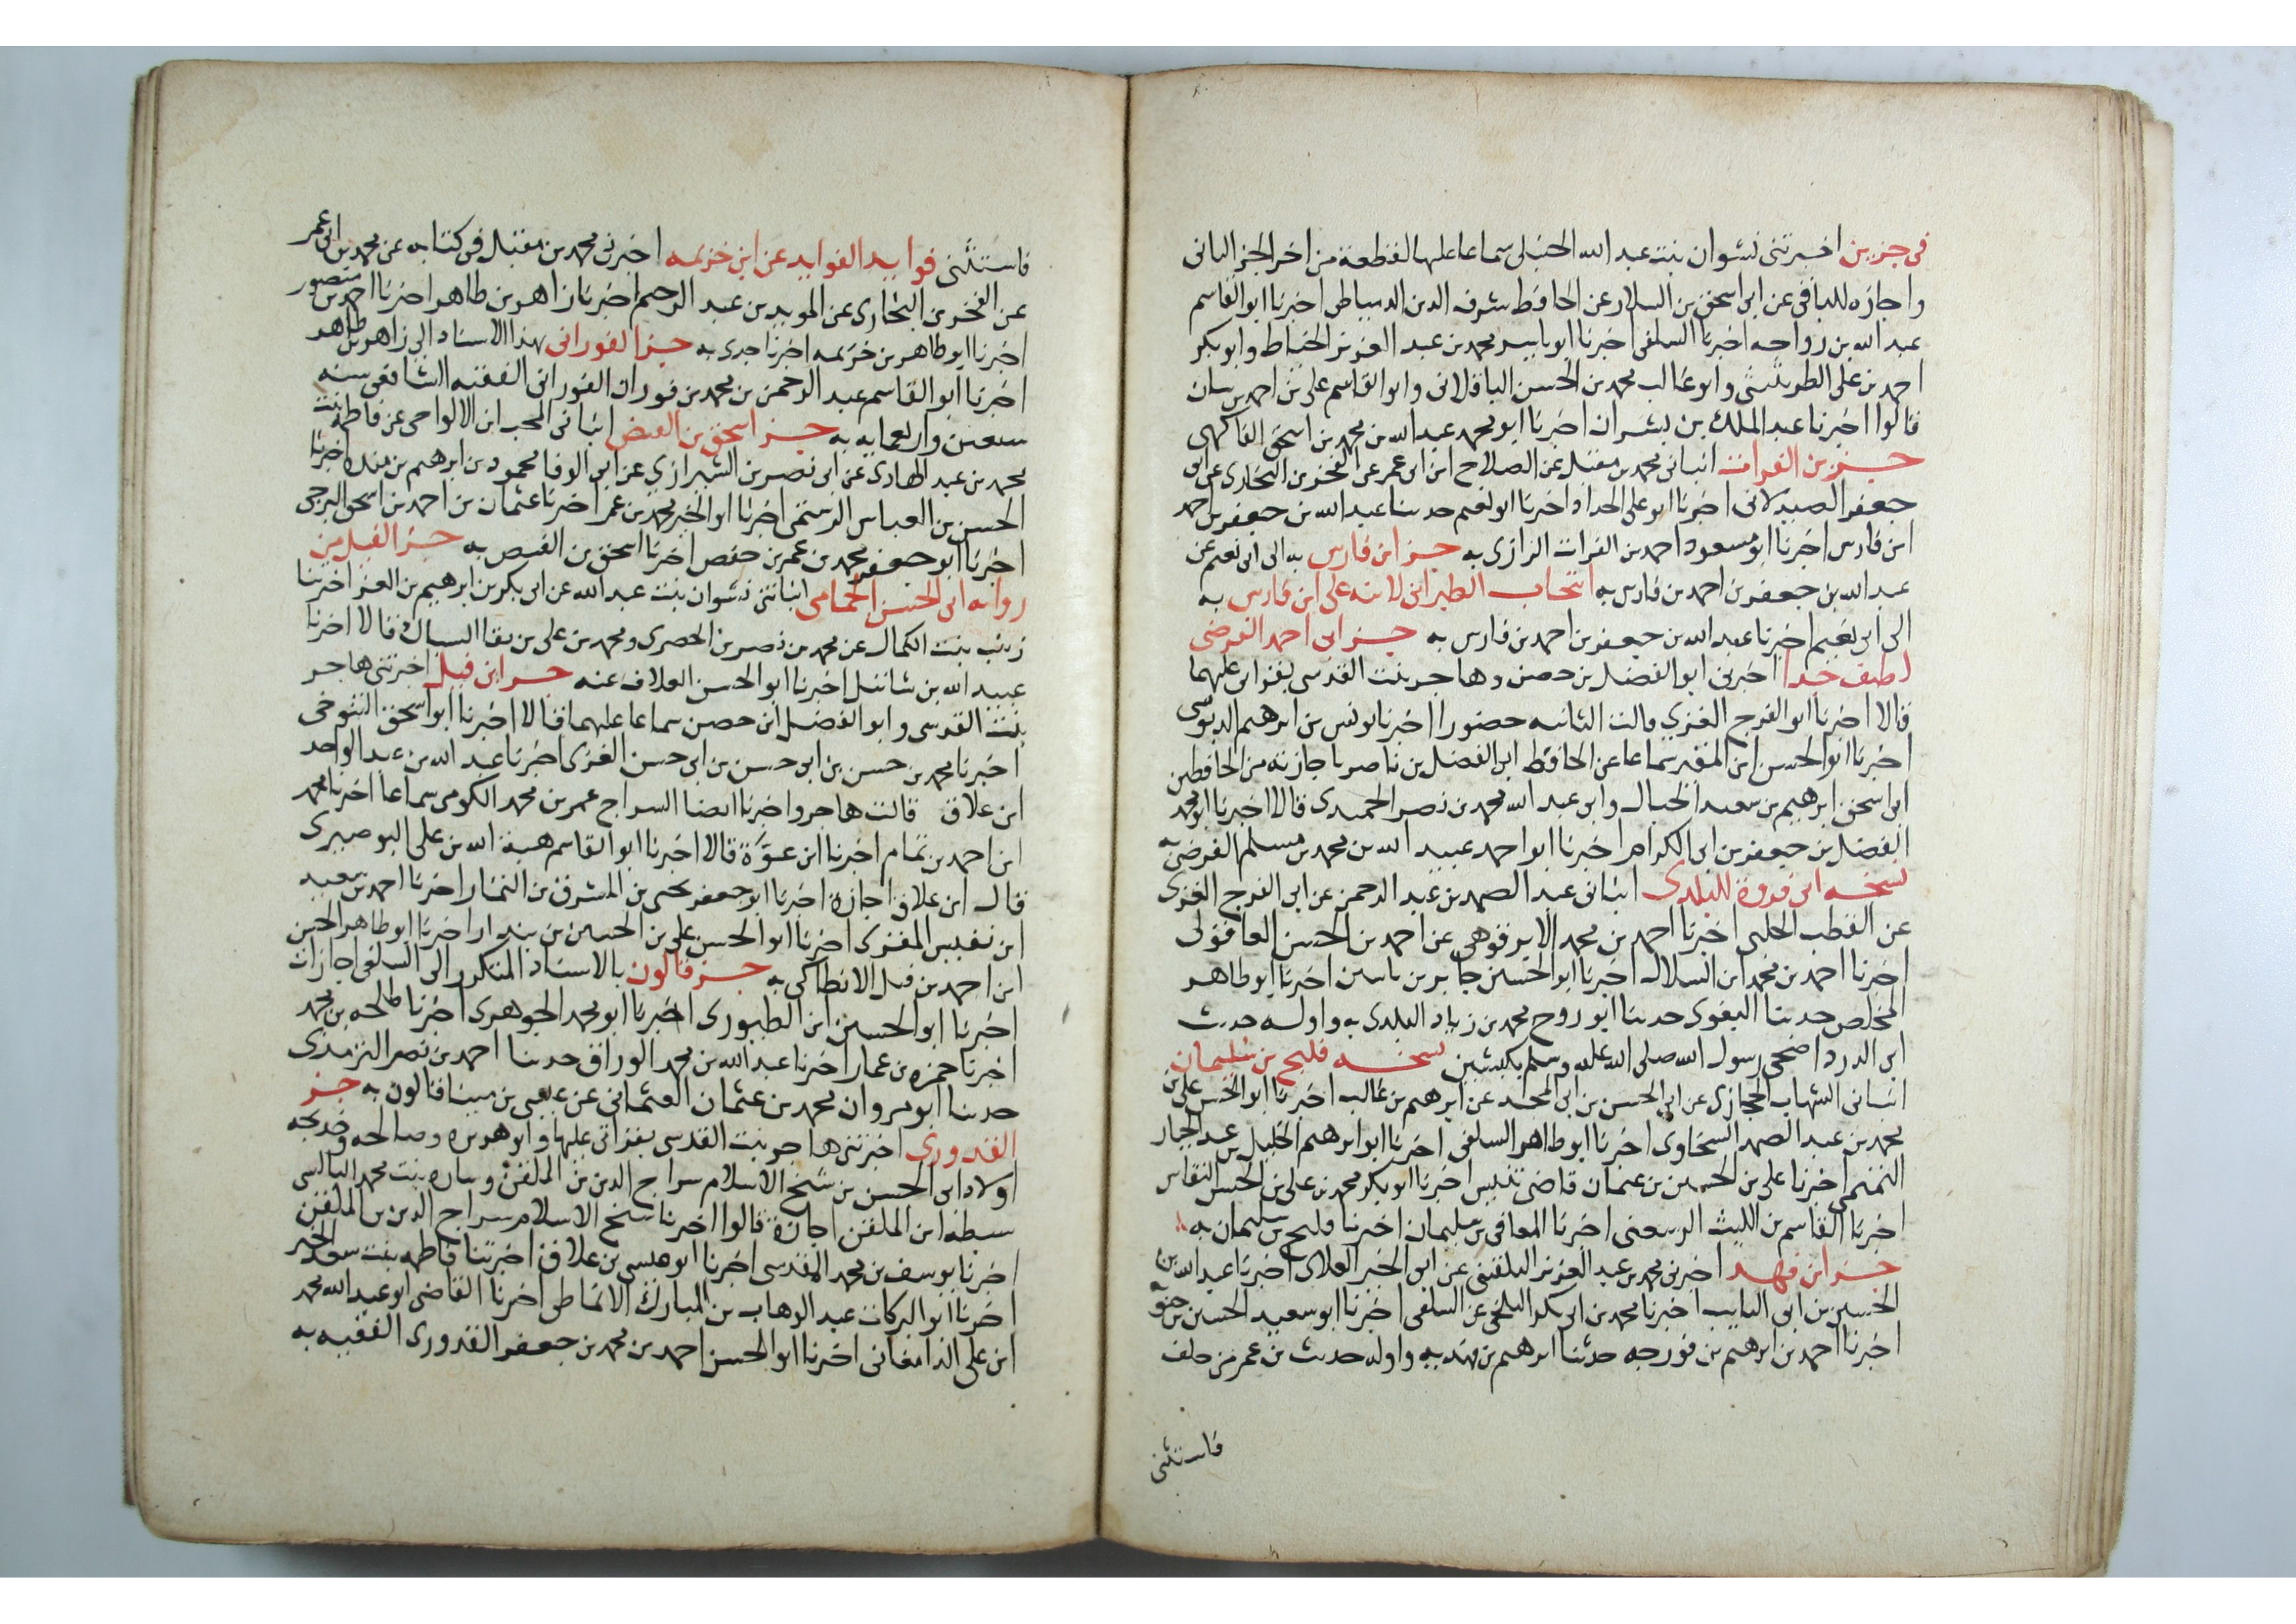 في جزين اخبرتني نشوان بنت عبد الله الحنبلي سماعا عليها لقطعة من اخر الجز الثاني
واجازه للباقي عن ابي اسحق بن السلار عن الحافظ شرف الدين الدمياطي اخبرنا ابو القاسم
عبد الله بن رواحه اخبرنا السلفي اخبرنا ابو ياسر محمد بن عبد العزيز الخياط وابو بكر
احمد بن علي الطريثيثي وابو غالب محمد بن الحسن الباقلاني وابو القاسم علي بن احمد بن بيان
قالوا اخبرنا عبد الملك بن بشران اخبرنا ابو محمد عبد الله بن محمد بن اسحق الفاكهي
جزء بن الفرات انباني محمد بن مقبل عن الصلاح ابن ابي عمر عن الفخر بن البخاري عن ابي
جعفر الصيدلاني اخبرنا ابو علي الحداد اخبرنا ابو نعيم حدثنا عبد الله بن جعفر بن احمد
ابن فارس اخبرنا ابو مسعود احمد بن الفرات الرازي به جز ابن فارس به الى ابي نعيم عن
عبد الله بن جعفر بن احمد بن فارس به انتخاب الطبراني لابنه على ابن فارس به
الى ابي نعيم اخبرنا عبد الله بن جعفر بن احمد بن فارس به جز ابي احمد الفرضي
لطيف جدا اخبرني ابو الفضل بن حصن وهاجر بنت القدسي بقراتي عليهما
قالا اخبرنا ابو الفرج الغزي قالت الثانيه حضورا اخبرنا يونس بن ابرهيم الدبوسي
اخبرنا ابو الحسن ابن المقير سماعا عن الحافظ ابي الفضل بن ناصر باجازته من الحافظين
ابي اسحق ابرهيم بن سعيد الحبال وابي عبد الله محمد بن نصر الحميدي قالا اخبرنا ابو محمد
الفضل بن جعفر بن ابي الكرام اخبرنا ابو احمد عبيد الله بن محمد بن مسلم الفرضي به
نسخه ابي فروة للبلدي انباني عبد الصمد بن عبد الرحمن عن ابي الفرج الغزي
عن القطب الحلبي اخبرنا احمد بن محمد الابرقوهي عن احمد بن الحسن العاقولي
اخبرنا احمد بن محمد ابن السلال اخبرنا ابو الحسين جابر بن ياسين اخبرنا ابو طاهر
المخلص حدثنا البغوي حدثنا ابو روح محمد بن زياد البلدي به واوله حديث
ابي الدردا ضحى رسول الله صلى الله عليه وسلم بكبشين نسخه فليح بن سليمان
انباني الشهاب الحجازي عن ابي الحسن بن ابي المجد عن ابرهيم بن غالب اخبرنا ابو الحسن علي بن
محمد بن عبد الصمد السخاوي اخبرنا ابو طاهر السلفي اخبرنا ابو ابرهيم الخليل بن عبد الجبار
التميمي اخبرنا علي بن الحسين بن عثمان قاضي تفليس اخبرنا ابو بكر محمد بن علي بن الحسن النقاش
اخبرنا القاسم بن الليث الرسعني اخبرنا المعافى بن سليمان اخبرنا فليح بن سليمان به
جز ابن فهد اخبرني محمد بن عبد العزيز البلقيني عن ابي الخير العلائي اخبرنا عبد الله بن
الحسين بن ابي التايب اخبرنا محمد بن ابي بكر البلخي عن السلفي اخبرنا ابو سعيد الحسين بن
اخبرنا احمد بن ابرهيم بن فورجه حدثنا ابرهيم بن فهد به واوله حديث بن عمر من حلف
فاستثنى
فاستثنى فوايد الفوايد عن ابن خزيمه اخبرني محمد بن مقبل في كتابه عن محمد بن ابي عمر
عن الفخر بن البخاري عن المويد بن عبد الرحيم اخبرنا زاهر بن طاهر اخبرنا احمد بن منصور
اخبرنا ابو طاهر بن خزيمه اخبرنا جدي به جز الفوراني بهذا الاسناد الى زاهر بن طاهر
اخبرنا ابو القاسم عبد الرحمن بن محمد بن فوران الفوراني الفقيه الشافعي سنه
ستين واربعمايه به جز اسحق بن الفيض انباني المحب ابن الالواحي عن فاطمه بنت
محمد بن عبد الهادي عن ابي نصر بن الشيرازي عن ابي الوفا محمود بن ابرهيم بن منده اخبرنا
الحسن بن العباس الرستمي اخبرنا ابو الخير محمد بن عمر اخبرنا عثمان بن احمد بن اسحق البرجي
اخبرنا ابو جعفر محمد بن عمر بن حفص اخبرنا اسحق بن الفيض به جز الفيل من
روايه ابي الحسن الحمامي انباتني نشوان بنت عبد الله عن ابي بكر بن ابرهيم بن العز اخبرتنا
زينب بنت الكمال عن محمد بن نصر بن الحصري ومحمد بن علي بن بقا السباك قالا اخبرنا
عبيد الله بن شاتيل اخبرنا ابو الحسن العلاف عنه جز ابن فيل اخبرتني هاجر
بنت القدسي وابو الفضل ابن حصن سماعا عليهما قالا اخبرنا ابو اسحق التنوخي
اخبرنا محمد بن حسن بن ابي حسن بن ابي حسن الغزي اخبرنا عبد الله بن عبد الواحد
ابن علاق قالت هاجر واخبرنا ايضا السراج عمر بن محمد الكومي سماعا اخبرنا محمد
ابن احمد بن تمام اخبرنا ابن عزة قالا اخبرنا ابو القاسم هبة الله بن علي البوصيري
قال ابن علاق اجازة اخبرنا ابو جعفر يحيى بن المشرف بن التمار اخبرنا احمد بن سعيد
ابن نفيس المقري اخبرنا ابو الحسن علي بن الحسين بن بندار اخبرنا ابو طاهر الحسن
ابن احمد بن فيل الانطاكي به جز قالون بالاسناد المتكرر الى السلفي اجازات
اخبرنا ابو الحسين ابن الطيوري اخبرنا ابو محمد الجوهري اخبرنا طلحه بن محمد
اخبرنا حمزه بن عمار اخبرنا عبد الله بن محمد الوراق حدثنا احمد بن نصر الترمذي
حدثنا ابو مروان محمد بن عثمان العثماني عن عيسى بن مينا قالون به جز
القدوري اخبرتني هاجر بنت القدسي بقراتي عليها وابو هريره وصالحه وخديجه
اولاد ابي الحسن بن شيخ الاسلام سراج الدين بن الملقن وساره بنت محمد البالسي
سبطه ابن الملقن اجازة قالوا اخبرنا شيخ الاسلام سراج الدين بن الملقن
اخبرنا يوسف بن محمد المقدسي اخبرنا ابو عيسى بن علاق اخبرتنا فاطمه بنت سعد الخير
اخبرنا ابو البركات عبد الوهاب بن المبارك الانماطي اخبرنا القاضي ابو عبد الله محمد
ابن علي الدامغاني اخبرنا ابو الحسن احمد بن محمد بن جعفر القدوري الفقيه به